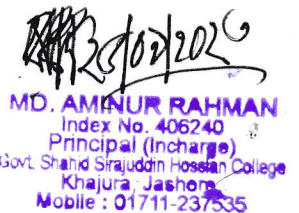 25/02/2026
MD. AMINUR RAHMAN
Index No. 406240
Principal (Incharge)
Govt. Shahid Sirajuddin Hossian College
Khajura, Jashore
Mobile : 01711-237535